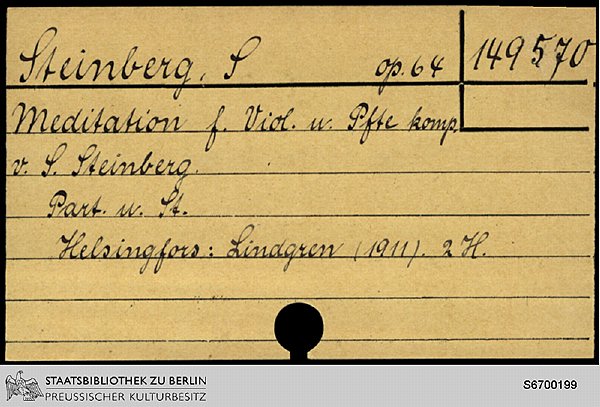 Steinberg, S op. 64 149570
Meditation f. Viol. u. Pfte komp.
v. S. Steinberg.
Part. u. St.
Helsingfors: Lindgren (1911). 2 H.
STAATSBIBLIOTHEK ZU BERLIN
PREUSSISCHER KULTURBESITZ
S6700199